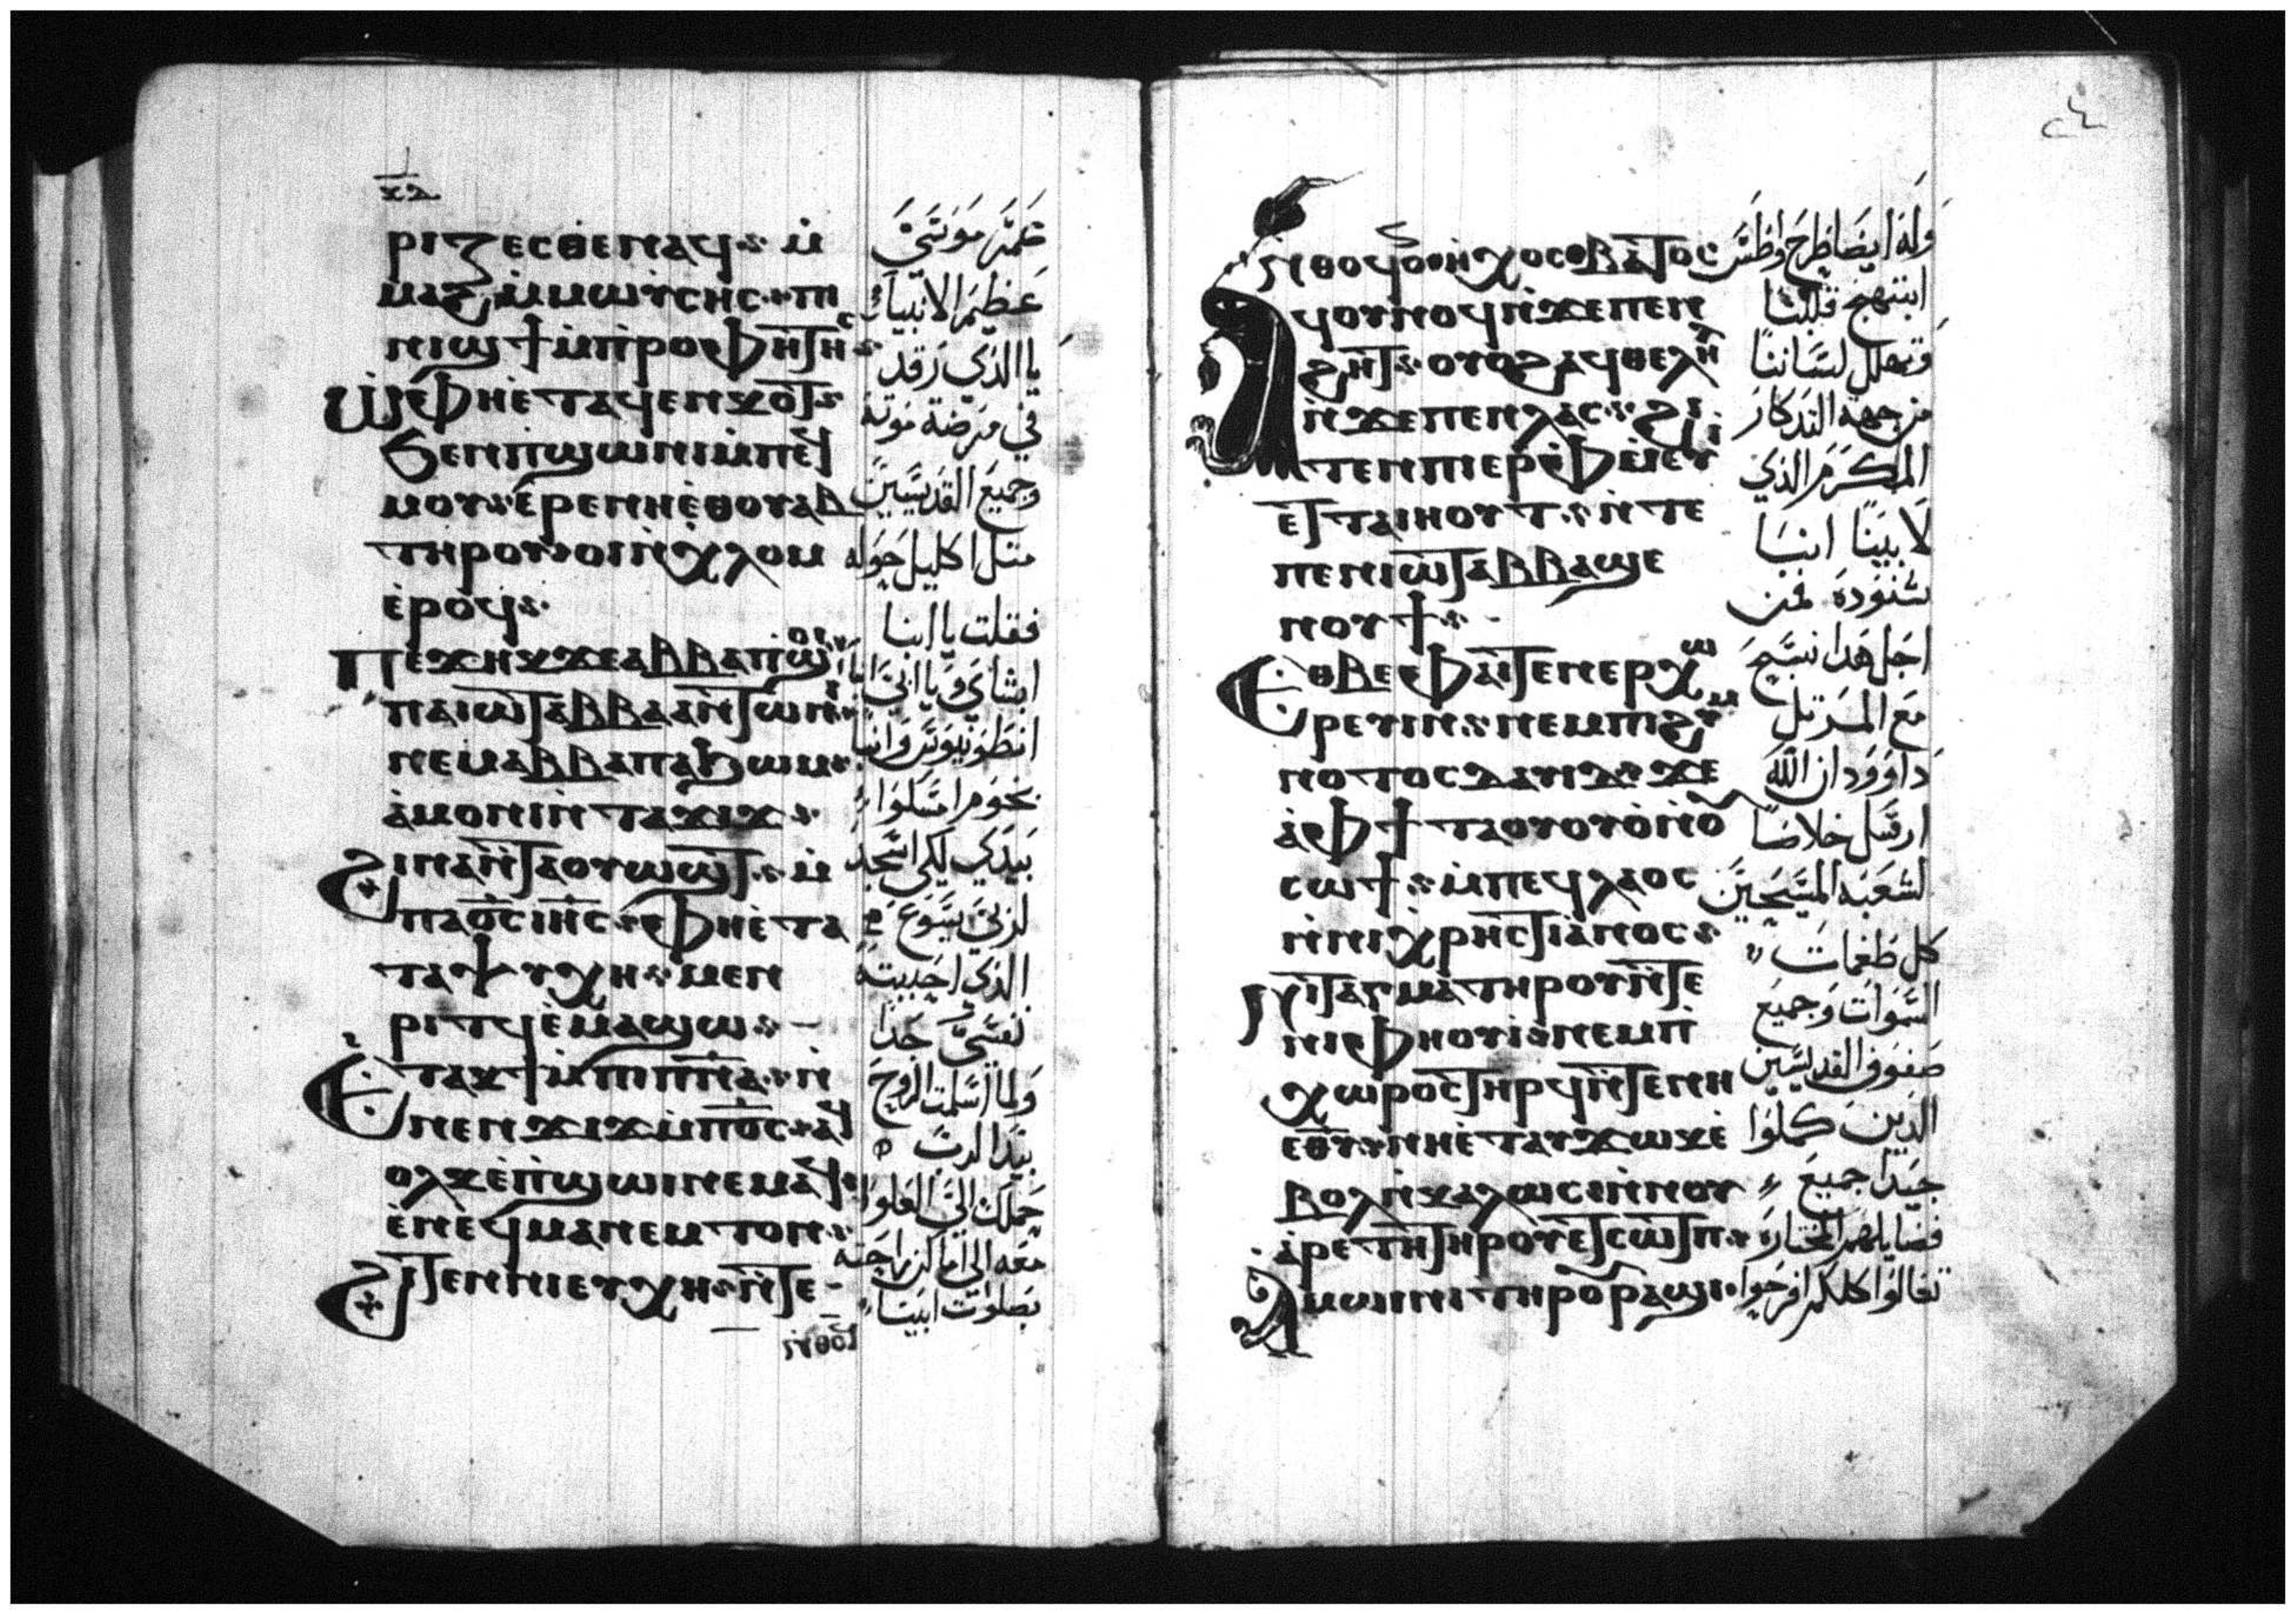 ⲣⲓⲍⲉⲥⲑⲉ ⲛⲁϥ ⲙ̀
ⲙⲁϩ ⲙ̀ⲙⲱⲩⲥⲏⲥ ⲡⲓ
ⲛⲓϣϯ ⲙ̀ⲡⲣⲟⲫⲏⲧⲏⲥ
ⲱ ⲫⲏⲉ̀ⲧⲁϥⲉⲛⲕⲟⲧ
ϧⲉⲛ ⲡϣⲱⲛⲓ ⲙ̀ⲡⲉϥ
ⲙⲟⲩ ⲉ̀ⲣⲉ ⲛⲏⲉ̀ⲑⲟⲩⲁⲃ
ⲧⲏⲣⲟⲩ ⲟⲓ ⲛ̀ⲭⲗⲟⲙ
ⲉ̀ⲣⲟϥ
ⲡⲉϫⲏⲕ ϫⲉ ⲁⲃⲃⲁ ⲡϣⲟⲓ
ⲡⲁⲓⲱⲧ ⲁⲃⲃⲁ ⲁⲛⲧⲱⲛⲓ
ⲛⲉⲙ ⲁⲃⲃⲁ ⲡⲁϧⲱⲙ
ⲁ̀ⲙⲟⲛⲓ ⲛ̀ⲧⲁϫⲓϫ
ϩⲓⲛⲁ ⲛ̀ⲧⲁⲟⲩⲱϣⲧ ⲙ̀
ⲡⲁⲟ̅ⲥ̅ ⲓⲏ̅ⲥ̅ ⲫⲏⲉ̀ⲧⲁ
ⲧⲁⲯⲩⲭⲏ ⲙⲉⲛ
ⲣⲓⲧϥ ⲉ̀ⲙⲁϣⲱ
ⲉⲧⲁⲕϯ ⲙ̀ⲡⲓⲡ̅ⲛ̅ⲁ̅ ⲛ̀
ⲛⲉⲛϫⲓϫ ⲙ̀ⲡⲟ̅ⲥ̅ ⲁϥ
ⲟⲗⲕ ⲉ̀ⲡϣⲱⲓ ⲛⲉⲙⲁϥ
ⲉ̀ⲛⲉϥⲙⲁⲛⲉⲙⲧⲟⲛ
ϩⲓⲧⲉⲛ ⲛⲓⲉⲩⲭⲏ ⲛ̀ⲧⲉ
عظيم الانبياء
يا الذي رقد
في مرضة موته
وجميع القديسين
مثل اكليل حوله
فقلت يا ابنا
ابشاي ويا ابي انبا
انطونيوس وانبا
بخوم امسكوا
بيدي لكي اسجد
لربي يسوع
الذي احببته
نفسي جدا
ولما اسلمت الروح
بيد الرب
حملك الى العلوا
معه الى اماكن راحته
بصلوات ابينا
٢٤
ⲛ̀ⲑⲟϥ ⲟⲛ ⲏⲭⲟⲥ ⲃⲁⲧⲟⲥ
ϥⲟⲩⲛⲟϥ ⲛ̀ϫⲉ ⲡⲉⲛ
ϩⲏⲧ ⲟⲩⲟϩ ⲁϥⲑⲉⲗⲏⲗ
ⲛ̀ϫⲉ ⲡⲉⲛⲗⲁⲥ ϩⲓ
ⲧⲉⲛ ⲡⲓⲉⲣⲫⲙⲉⲩⲓ
ⲉⲧⲧⲁⲓⲏⲟⲩⲧ ⲛ̀ⲧⲉ
ⲡⲉⲛⲓⲱⲧ ⲁⲃⲃⲁ ϣⲉ
ⲛⲟⲩϯ
ⲉⲑⲃⲉ ⲫⲁⲓ ⲧⲉⲛⲉⲣⲭⲱ
ⲣⲉⲩⲓⲛ ⲛⲉⲙ ⲡⲓϩⲩⲙ
ⲛⲟⲧⲟⲥ ⲇⲁⲩⲓⲇ ϫⲉ
ⲁ̀ⲫϯ ⲧⲁⲟⲩⲟ ⲟⲩⲟ̀ⲛⲟ
ⲥⲱϯ ⲙ̀ⲡⲉϥⲗⲁⲟⲥ
ⲛ̀ⲛⲓⲭⲣⲏⲥⲧⲓⲁⲛⲟⲥ
ⲛⲓⲧⲁⲅⲙⲁ ⲧⲏⲣⲟⲩ ⲛ̀ⲧⲉ
ⲛⲓⲫⲏⲟⲩⲓ ⲛⲉⲙ ⲡⲓ
ⲭⲱⲣⲟⲥ ⲧⲏⲣϥ ⲛ̀ⲧⲉ ⲛⲏ
ⲉⲑⲩ ⲛⲏⲉ̀ⲧⲁⲩϫⲱⲕ ⲉ̀
ⲃⲟⲗ ⲛ̀ⲕⲁⲗⲱⲥ ⲛ̀ⲛⲟⲩ
ⲁ̀ⲣⲉⲧⲏ ⲧⲏⲣⲟⲩ ⲉⲧⲥⲱⲧⲡ
ⲁⲙⲱⲓⲛⲓ ⲧⲏⲣⲟⲩ ⲣⲁϣⲓ
وله ايضا طرح واطس
ابتهج قلبنا
وتهلل لساننا
من جهة التذكار
المكرم الذي
لابينا انبا
شنوده
اجل هذا نسبح
مع المرتل
داوود ان الله
ارسل خلاصا
لشعبه المسيحيين
كل طغمات
السموات وجميع
صفوف القديسين
الذين كملوا
جيدا جميع
فضايلهم المختاره
تعالوا كلكم افرحوا